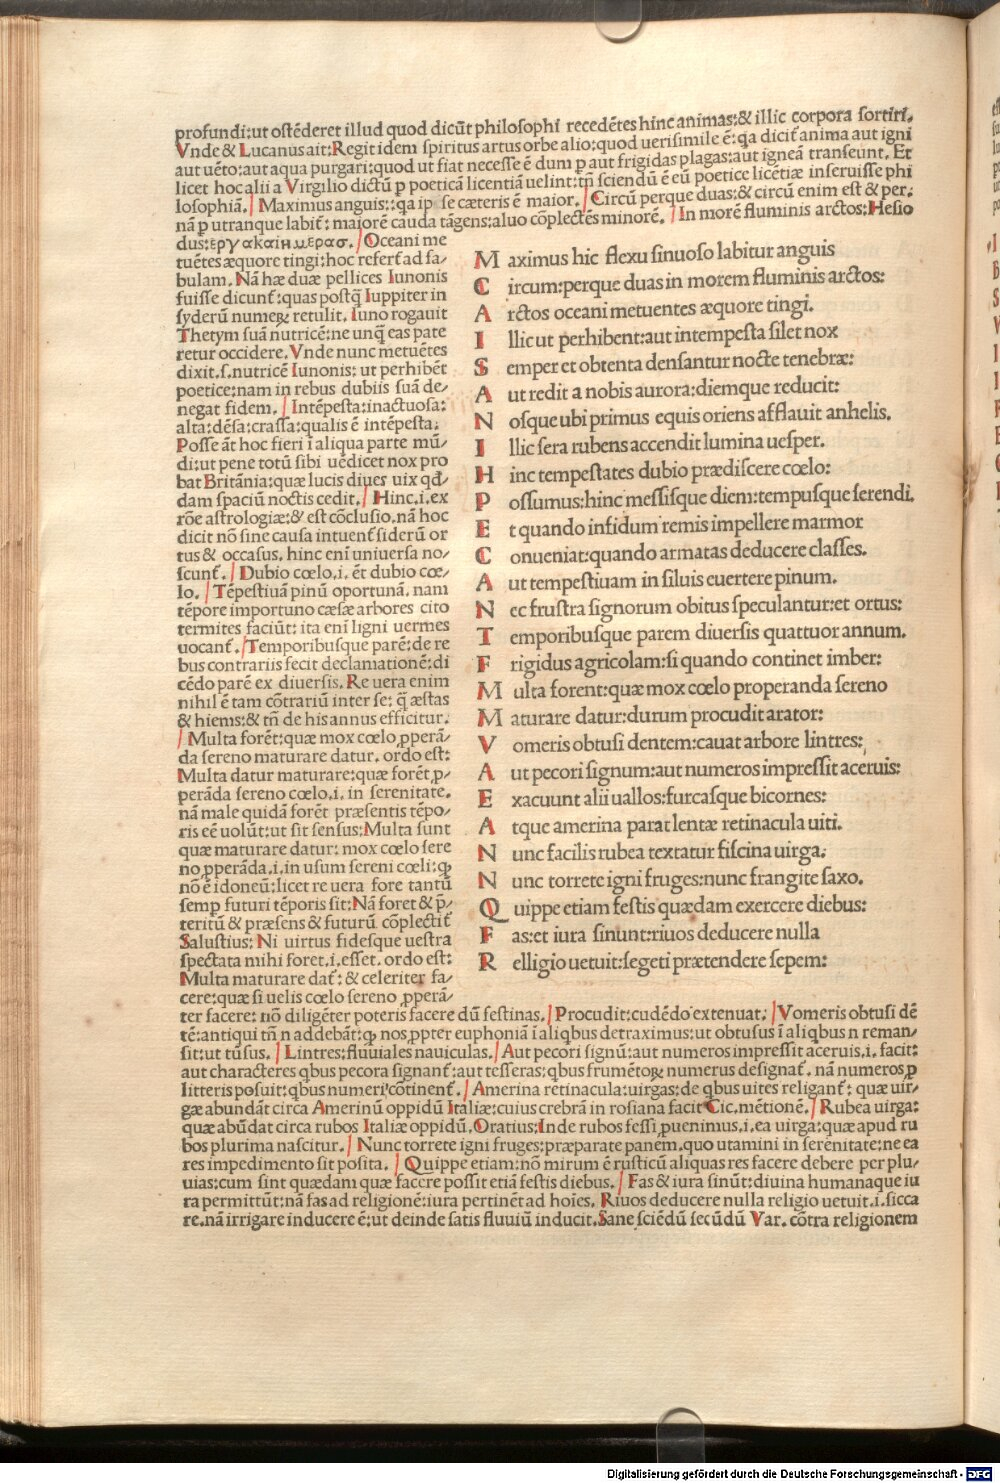 profundi:ut ostēderet illud quod dicūt philosophi recedētes hinc animas:& illic corpora sortiri.
Vnde & Lucanus ait:Regit idem spiritus artus orbe alio:quod uerisimile ē:qa dicit̄ anima aut igni
aut uēto:aut aqua purgari:quod ut fiat necesse ē dum p aut frigidas plagas:aut igneā transeunt. Et
licet hoc alii a Virgilio dictū p poeticā licentiā uelint:tn̄ sciendū ē eū poetice licētiæ inseruisse phi
losophiā. Maximus anguis::qa ipse cæteris ē maior. Circū perque duas:& circū enim est & per.
nā p utranque labit̄: maiorē cauda tāgens:aluo cōplectēs minorē. In morē fluminis arctos:Hesio
dus:εργακαιημερασ. Oceani me
tuētes æquore tingi:hoc refert̄ ad fa/
bulam. Nā hæ duæ pellices Iunonis
fuisse dicunt̄:quas postq̄ Iuppiter in
syderū numeꝝ retulit. Iuno rogauit
Thetym suā nutricē:ne unq̄ eas pate
retur occidere. Vnde nunc metuētes
dixit.s.nutricē Iunonis: ut perhibēt
poetice:nam in rebus dubiis suā de/
negat fidem. Intēpesta:inactuosa:
alta:dēsa:crassa:qualis ē intēpesta:
Posse āt hoc fieri ī aliqua parte mū/
di:ut pene totū sibi uēdicet nox pro
bat Britānia:quæ lucis diues uix qd̄
dam spaciū noctis cedit. Hinc.i.ex
rōe astrologiæ:& est cōclusio.nā hoc
dicit nō sine causa intuent̄ siderū or
tus & occasus. hinc enī uniuersa no/
scunt̄. Dubio cœlo.i. ēt dubio cœ/
lo. Tēpestiuā pinū oportunā. nam
tēpore importuno cæsæ arbores cito
termites faciūt: ita enī ligni uermes
uocant̄. Temporibusque parē:de re
bus contrariis fecit declamationē:di
cēdo parē ex diuersis. Re uera enim
nihil ē tam cōtrariū inter se: q̄ æstas
& hiems:& tn̄ de his annus efficitur.
Multa forēt:quæ mox cœlo ꝓperā/
da sereno maturare datur. ordo est:
Multa datur maturare:quæ forēt ꝓ/
perāda sereno cœlo.i. in serenitate.
nā male quidā forēt præsentis tēpo/
ris eē uolūt:ut sit sensus:Multa sunt
quæ maturare datur: mox cœlo sere
no ꝓperāda.i.in usum sereni cœli:ꝙ
nō ē idoneū:licet re uera fore tantū
semp futuri tēporis sit:Nā foret & p̄/
teritū & præsens & futurū cōplectit̄
Salustius: Ni uirtus fidesque uestra
spectata mihi foret.i.esset. ordo est:
Multa maturare dat̄: & celeriter fa/
cere:quæ si uelis cœlo sereno ꝓperā/
M aximus hic flexu sinuoso labitur anguis
C ircum:perque duas in morem fluminis arctos:
A rctos oceani metuentes æquore tingi.
I llic ut perhibent:aut intempesta silet nox
S emper et obtenta densantur nocte tenebræ:
A ut redit a nobis aurora:diemque reducit:
N osque ubi primus equis oriens afflauit anhelis.
I llic sera rubens accendit lumina uesper.
H inc tempestates dubio prædiscere cœlo:
P ossumus:hinc messisque diem:tempusque serendi.
E t quando infidum remis impellere marmor
C onueniat:quando armatas deducere classes.
A ut tempestiuam in siluis euertere pinum.
N ec frustra signorum obitus speculantur:et ortus:
T emporibusque parem diuersis quattuor annum.
F rigidus agricolam:si quando continet imber:
M ulta forent:quæ mox cœlo properanda sereno
M aturare datur:durum procudit arator:
V omeris obtusi dentem:cauat arbore lintres:
A ut pecori signum:aut numeros impressit aceruis:
E xacuunt alii uallos:furcasque bicornes:
A tque amerina parat lentæ retinacula uiti.
N unc facilis rubea textatur fiscina uirga:
N unc torrete igni fruges:nunc frangite saxo.
Q uippe etiam festis quædam exercere diebus:
F as:et iura sinunt:riuos deducere nulla
R elligio uetuit:segeti prætendere sepem:
ter facere: nō diligēter poteris facere dū festinas. Procudit:cudēdo extenuat. Vomeris obtusi dē
tē:antiqui tn̄ n addebāt:ꝙ nos ꝓpter euphoniā ī aliqbus detraximus:ut obtusus ī aliqbus n reman/
sit:ut tūsus. Lintres:fluuiales nauiculas. Aut pecori signū:aut numeros impressit aceruis.i. facit:
aut characteres qbus pecora signant̄:aut tesseras:qbus frumētoꝝ numerus designat̄. nā numeros p
litteris posuit:qbus numeri cōtinent̄. Amerina retinacula:uirgas:de qbus uites religant̄: quæ uir/
gæ abundāt circa Amerinū oppidū Italiæ:cuius crebrā in rosiana facit Cic.mētionē. Rubea uirga:
quæ abūdat circa rubos Italiæ oppidū.Oratius:Inde rubos fessi puenimus.i.ea uirga:quæ apud ru
bos plurima nascitur. Nunc torrete igni fruges:præparate panem.quo utamini in serenitate:ne ea
res impedimento sit posita. Quippe etiam:nō mirum ē rusticū aliquas res facere debere per plu/
uias:cum sint quædam quæ facere possit etiā festis diebus. Fas & iura sinūt:diuina humanaque iu
ra permittūt:nā fas ad religionē:iura pertinēt ad hoīes. Riuos deducere nulla religio uetuit.i.sicca
re.nā irrigare inducere ē:ut deinde satis fluuiū inducit.Sane sciēdū secūdū Var. cōtra religionem
Digitalisierung gefördert durch die Deutsche Forschungsgemeinschaft - DFG